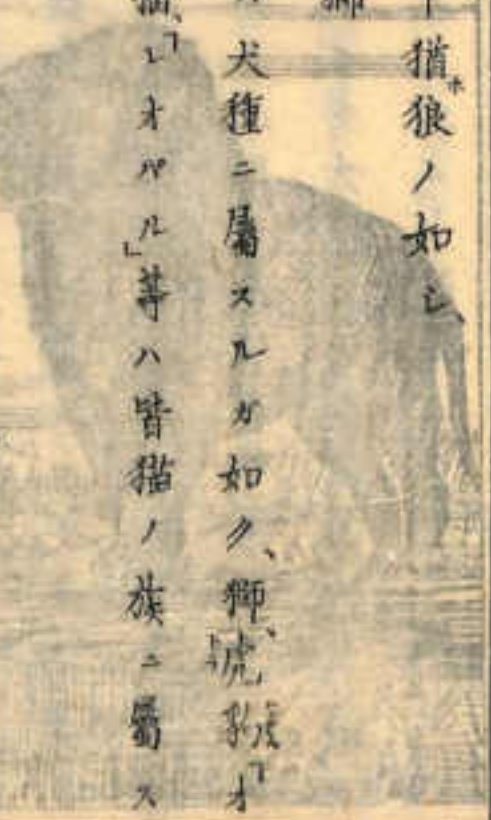 猶ホ狼ノ如シ、
犬種ニ屬スルガ如ク、獅、虎、豹「オ
「レオパル」等ハ皆猫ノ族ニ屬ス